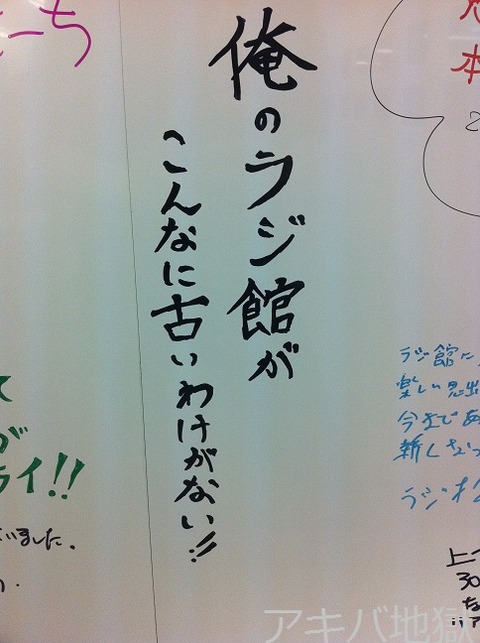 本
俺のラジ館が
こんなに古いわけがない!!
ラジ館に
楽しい思出
今まであ
新しくなっ
ラジオ
上
30
な
ーち
て
が
ライ!!
いました。
アキバ地獄